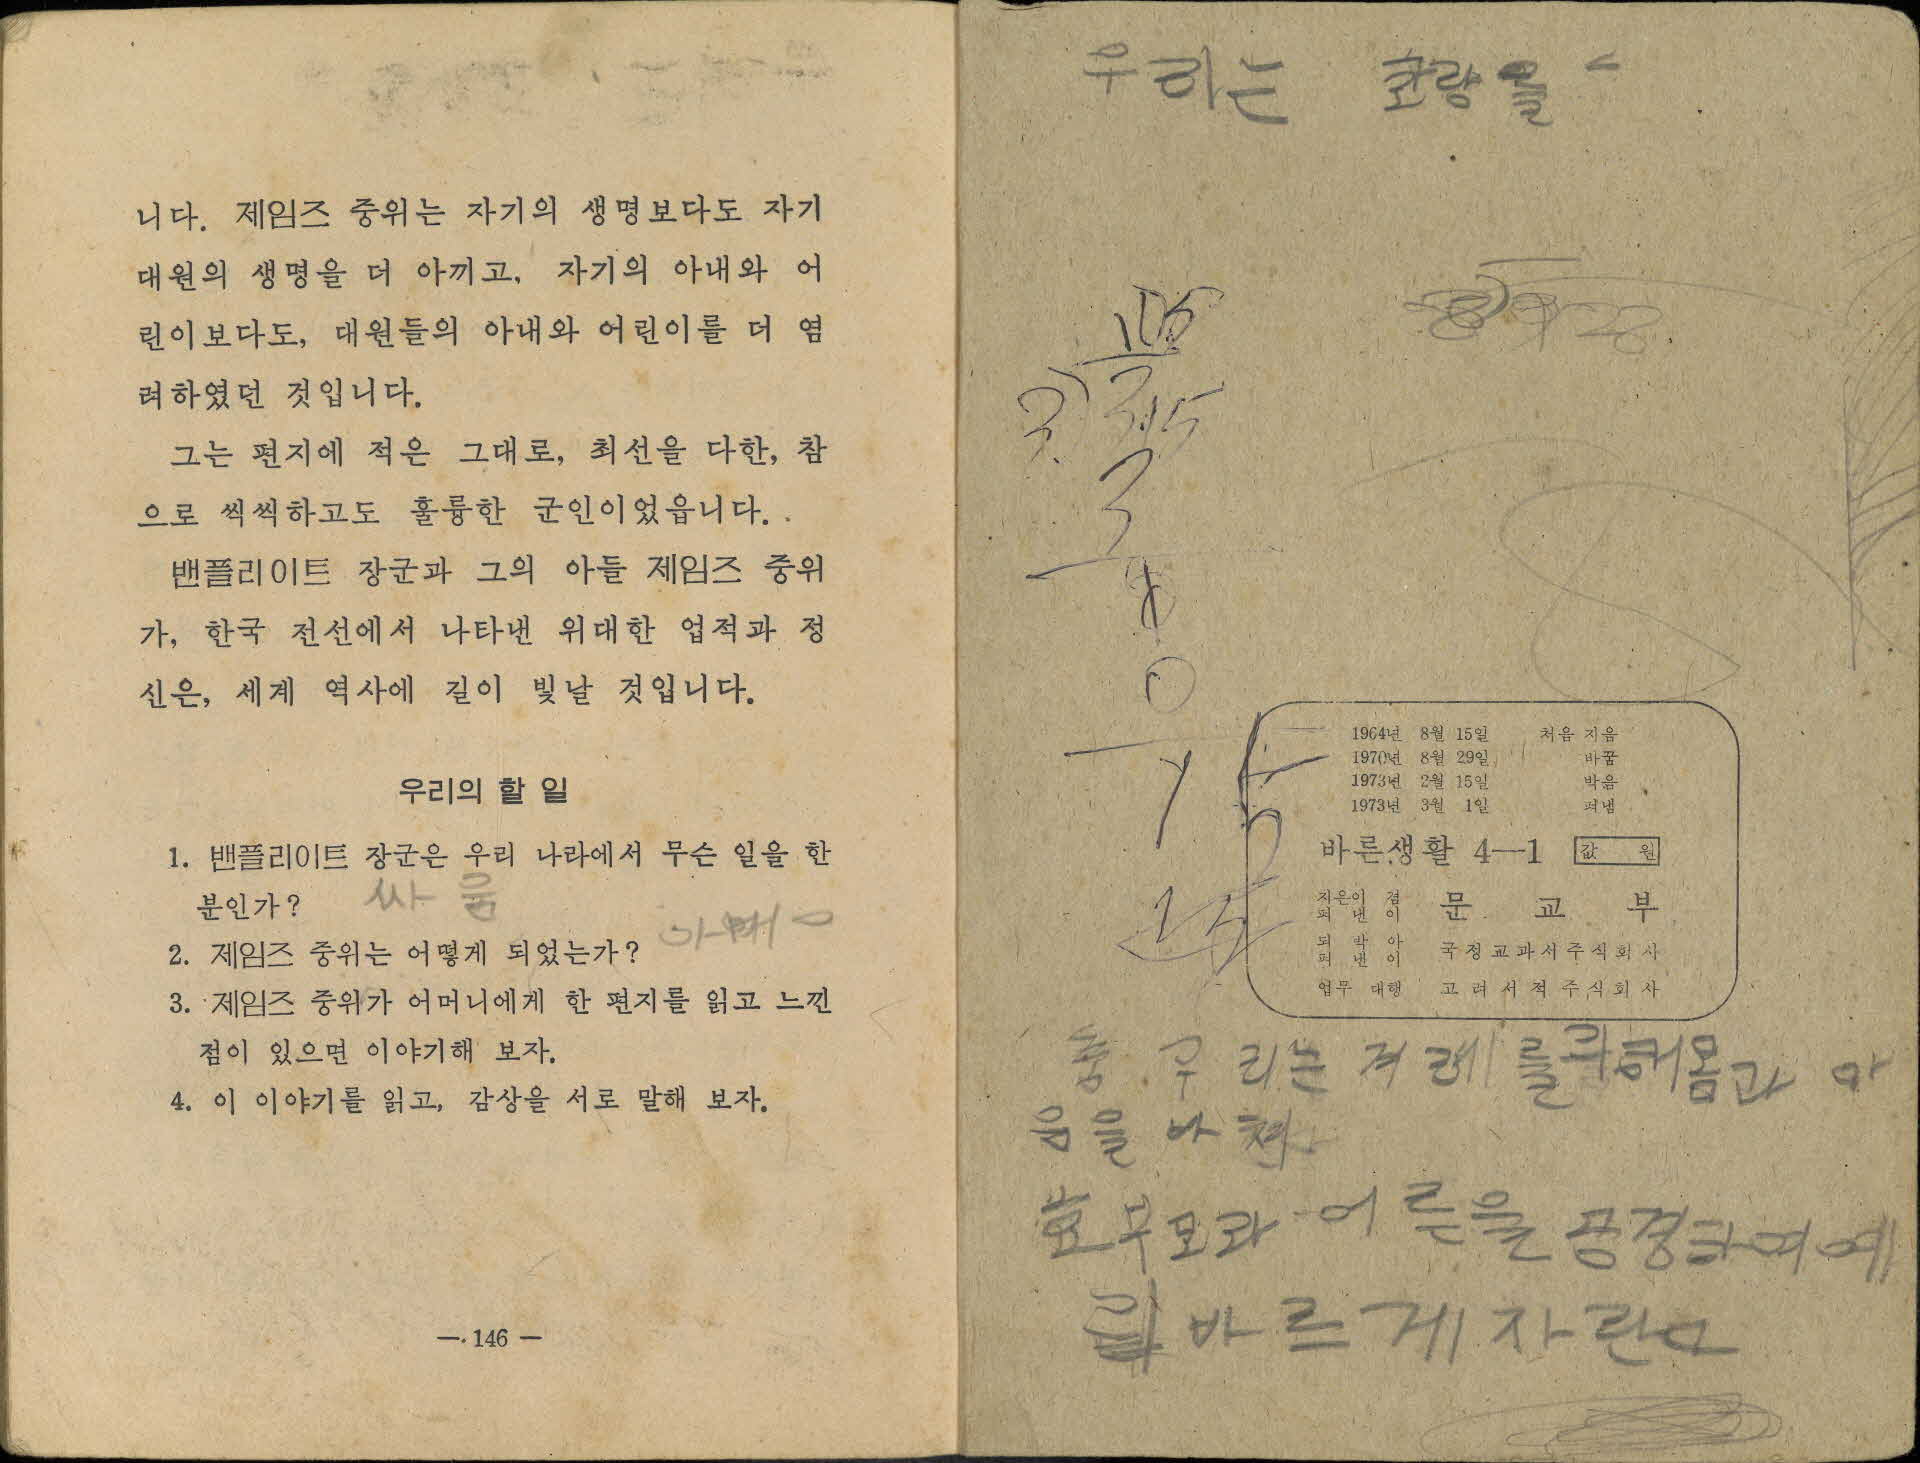 니다. 제임즈 중위는 자기의 생명보다도 자기
대원의 생명을 더 아끼고, 자기의 아내와 어
린이보다도, 대원들의 아내와 어린이를 더 염
려하였던 것입니다.
그는 편지에 적은 그대로, 최선을 다한, 참
으로 씩씩하고도 훌륭한 군인이었읍니다.
밴플리이트 장군과 그의 아들 제임즈 중위
가, 한국 전선에서 나타낸 위대한 업적과 정
신은, 세계 역사에 길이 빛날 것입니다.
우리의 할 일
1. 밴플리이트 장군은 우리 나라에서 무슨 일을 한
분인가?
싸움
2. 제임즈 중위는 어떻게 되었는가?
3. 제임즈 중위가 어머니에게 한 편지를 읽고 느낀
점이 있으면 이야기해 보자.
4. 이 이야기를 읽고, 감상을 서로 말해 보자.
— 146 —
우리는 화랑을
105
3)315
3
0
15
1964년 8월 15일 처음 지음
1970년 8월 29일 바꿈
1973년 2월 15일 박음
1973년 3월 1일 펴냄
바른생활 4—1 값 원
지은이 겸 펴낸이 문교부
되박아 펴낸이 국정교과서주식회사
업무 대행 고려서적주식회사
충 우리는 겨레를 위해 몸과 마
음을 바쳐
효 부모와 어른을 공경하며 예
바르게 자란